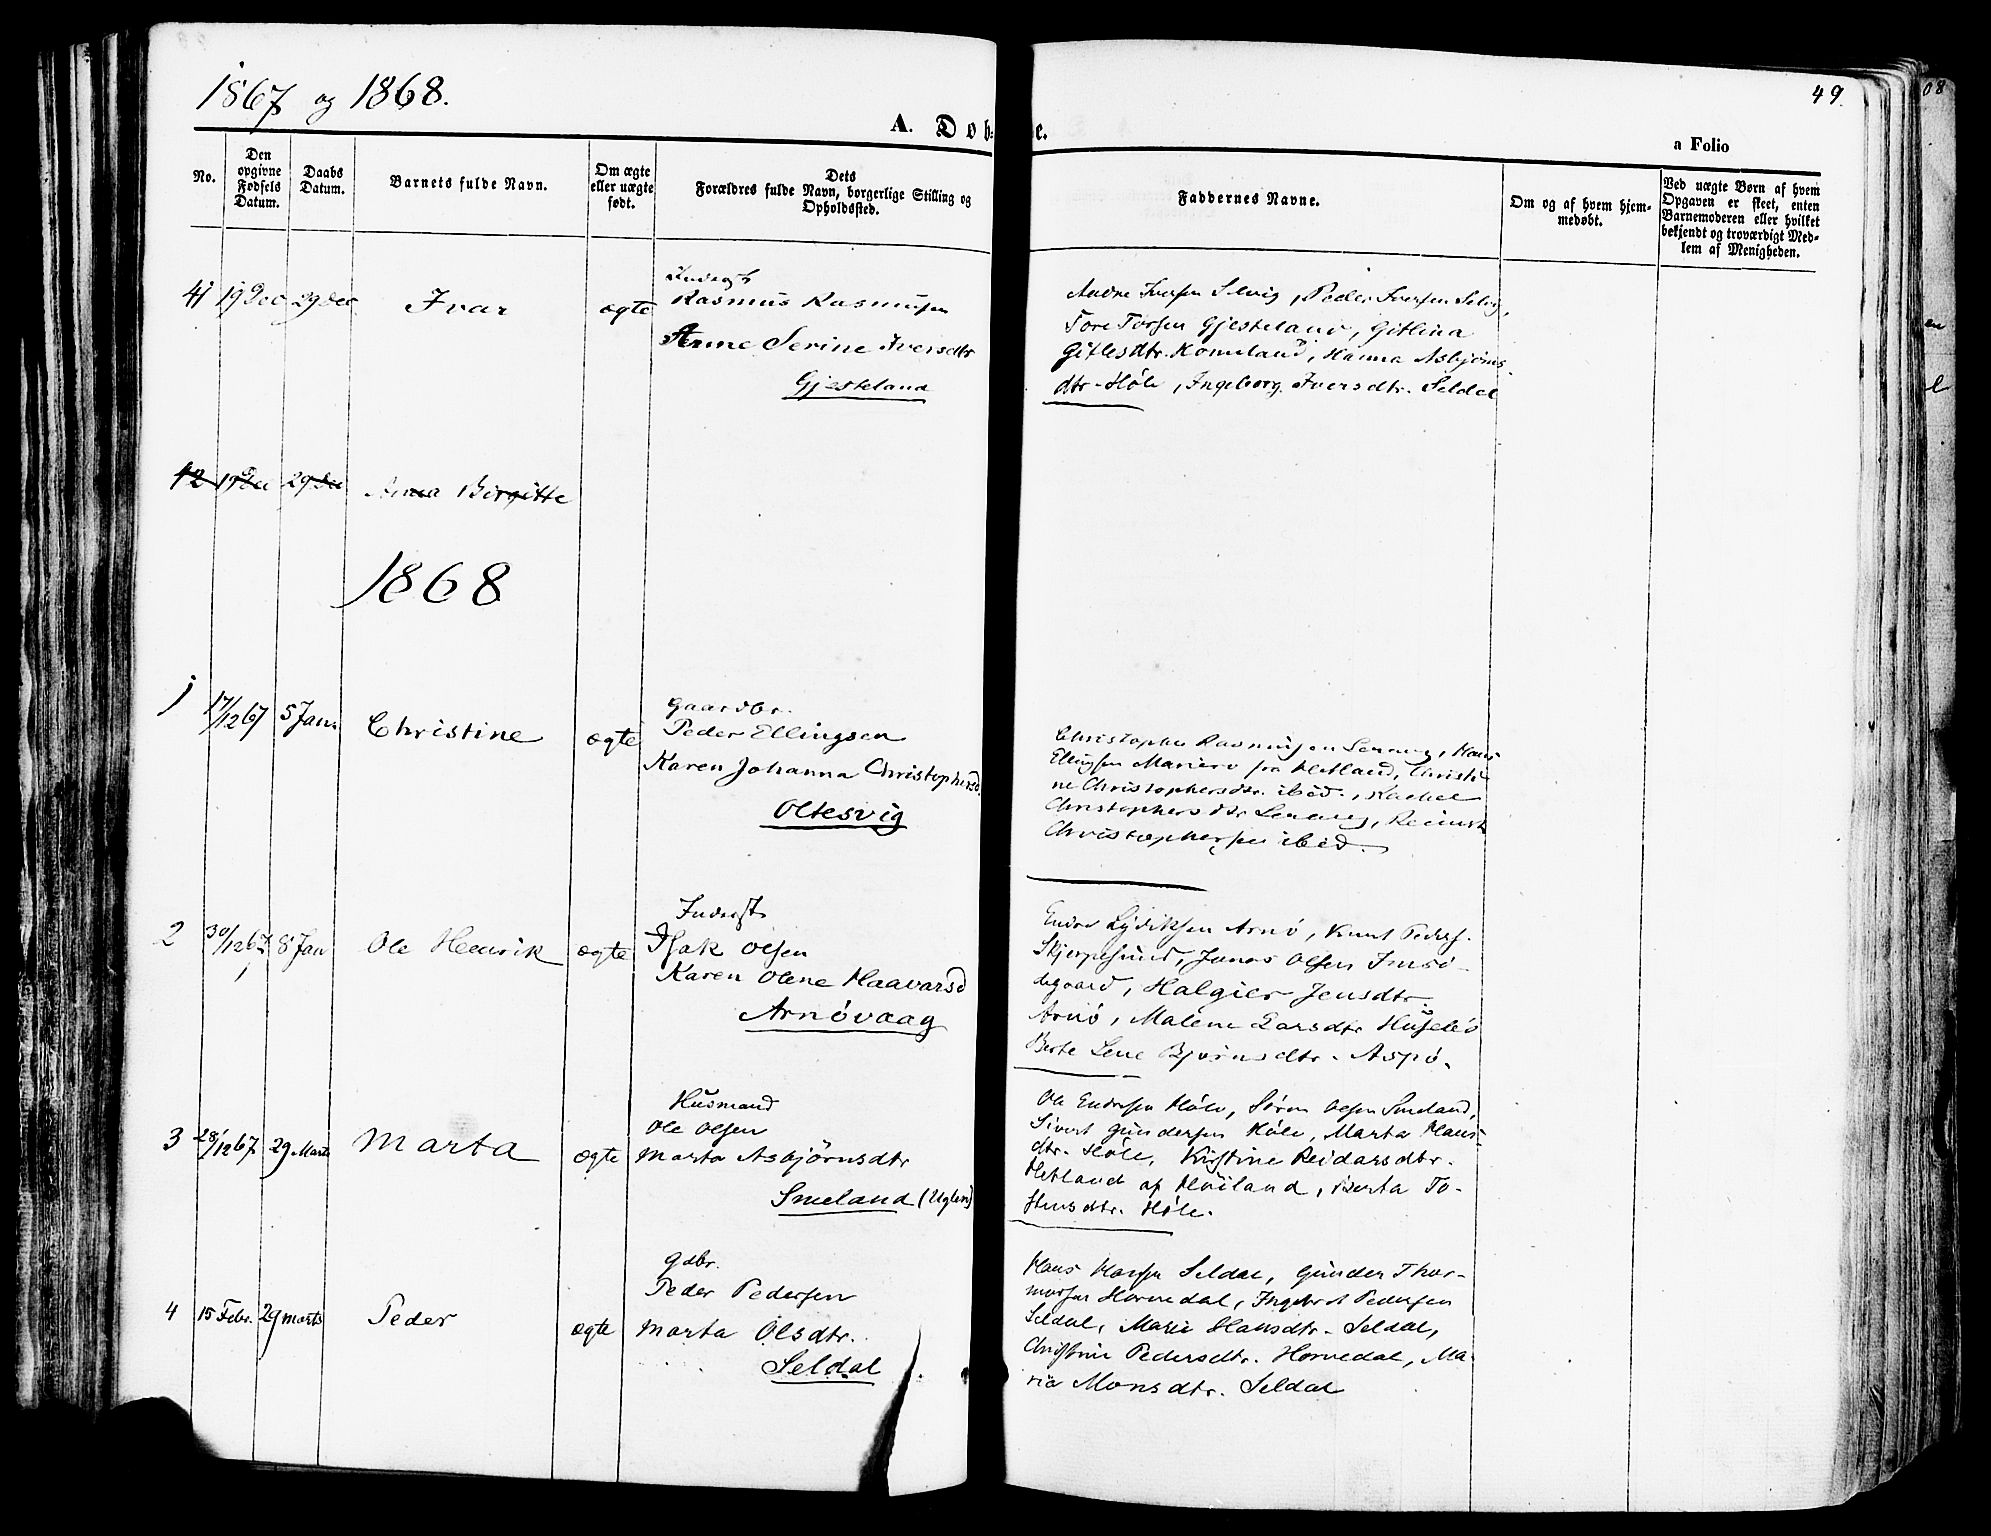 1867 og 1868.
49.
A. Døb
e.
a Folio
No.
Den opgivne Fødsels Datum.
Daabs Datum.
Barnets fulde Navn.
Om ægte eller uægte født.
Dets Forældres fulde Navn, borgerlige Stilling og Opholdssted.
Faddernes Navne.
Om og af hvem hjemmedøbt.
Ved uægte Børn af hvem Opgaven er skeet, enten Barnemoderen eller hvilket bekjendt og troværdigt Medlem af Menigheden.
41 19 Dec 29 Dec Ivar ægte
Inderst
Rasmus Rasmusen
Anne Serine Iversdtr
Gjesteland
Iversen Selvig, Peder Iversen Selvig,
Tore Torsen Gjesteland, Gitlina
Gitlesdtr. Komeland, Hanna Asbjørns
dtr. Høle, Ingeborg Iversdtr. Seldal
42 19 Dec 29 Dec Anna Birgitte
1868
1 17/12 67 5 Jan. Christine ægte
Gaardbr.
Peder Ellingsen
Karen Johanna Christophersd.
Oltesvig
Christopher Rasmusen Hans
Ellingsen fra Hetland, Christi
ne Christophersdtr. ibid., Rachel
Christophersdtr
Christophersen ibid.
2 30/12 67 8 Jan Ole Henrik ægte
Inderst
Isak Olsen
Karen Olene Haavarsd
Arnøvaag
Endre Lydiksen Arnø, Knut Peders.
Skjerpesund, Jonas Olsen Imsø
degaard, Halgier Jensdtr
Arnø, Malene Larsdtr
Berte Lene Bjørnsdtr. Aspø.
3 28/12 67 29 Marts Marta ægte
Husmand
Ole Olsen
Marta Asbjørnsdtr
Smeland (Uglen)
Ole Endresen Høle, Søren Olsen Smeland,
Sivert Gundersen Høle, Marta Hans
dtr. Høle, Kristine Reidarsdtr.
Hetland af Høiland, Berta To-
stensdtr. Høle.
4 15 Febr. 29 marts Peder ægte
Gdbr.
Peder Pedersen
Marta Olsdtr.
Seldal
Hans Hansen Seldal, Gunder Thor-
morsen Hornedal, Ingebret Pedersen
Seldal, Marie Hansdtr. Seldal,
Christine Pedersdtr. Hornedal, Ma-
ria Monsdtr. Seldal
08